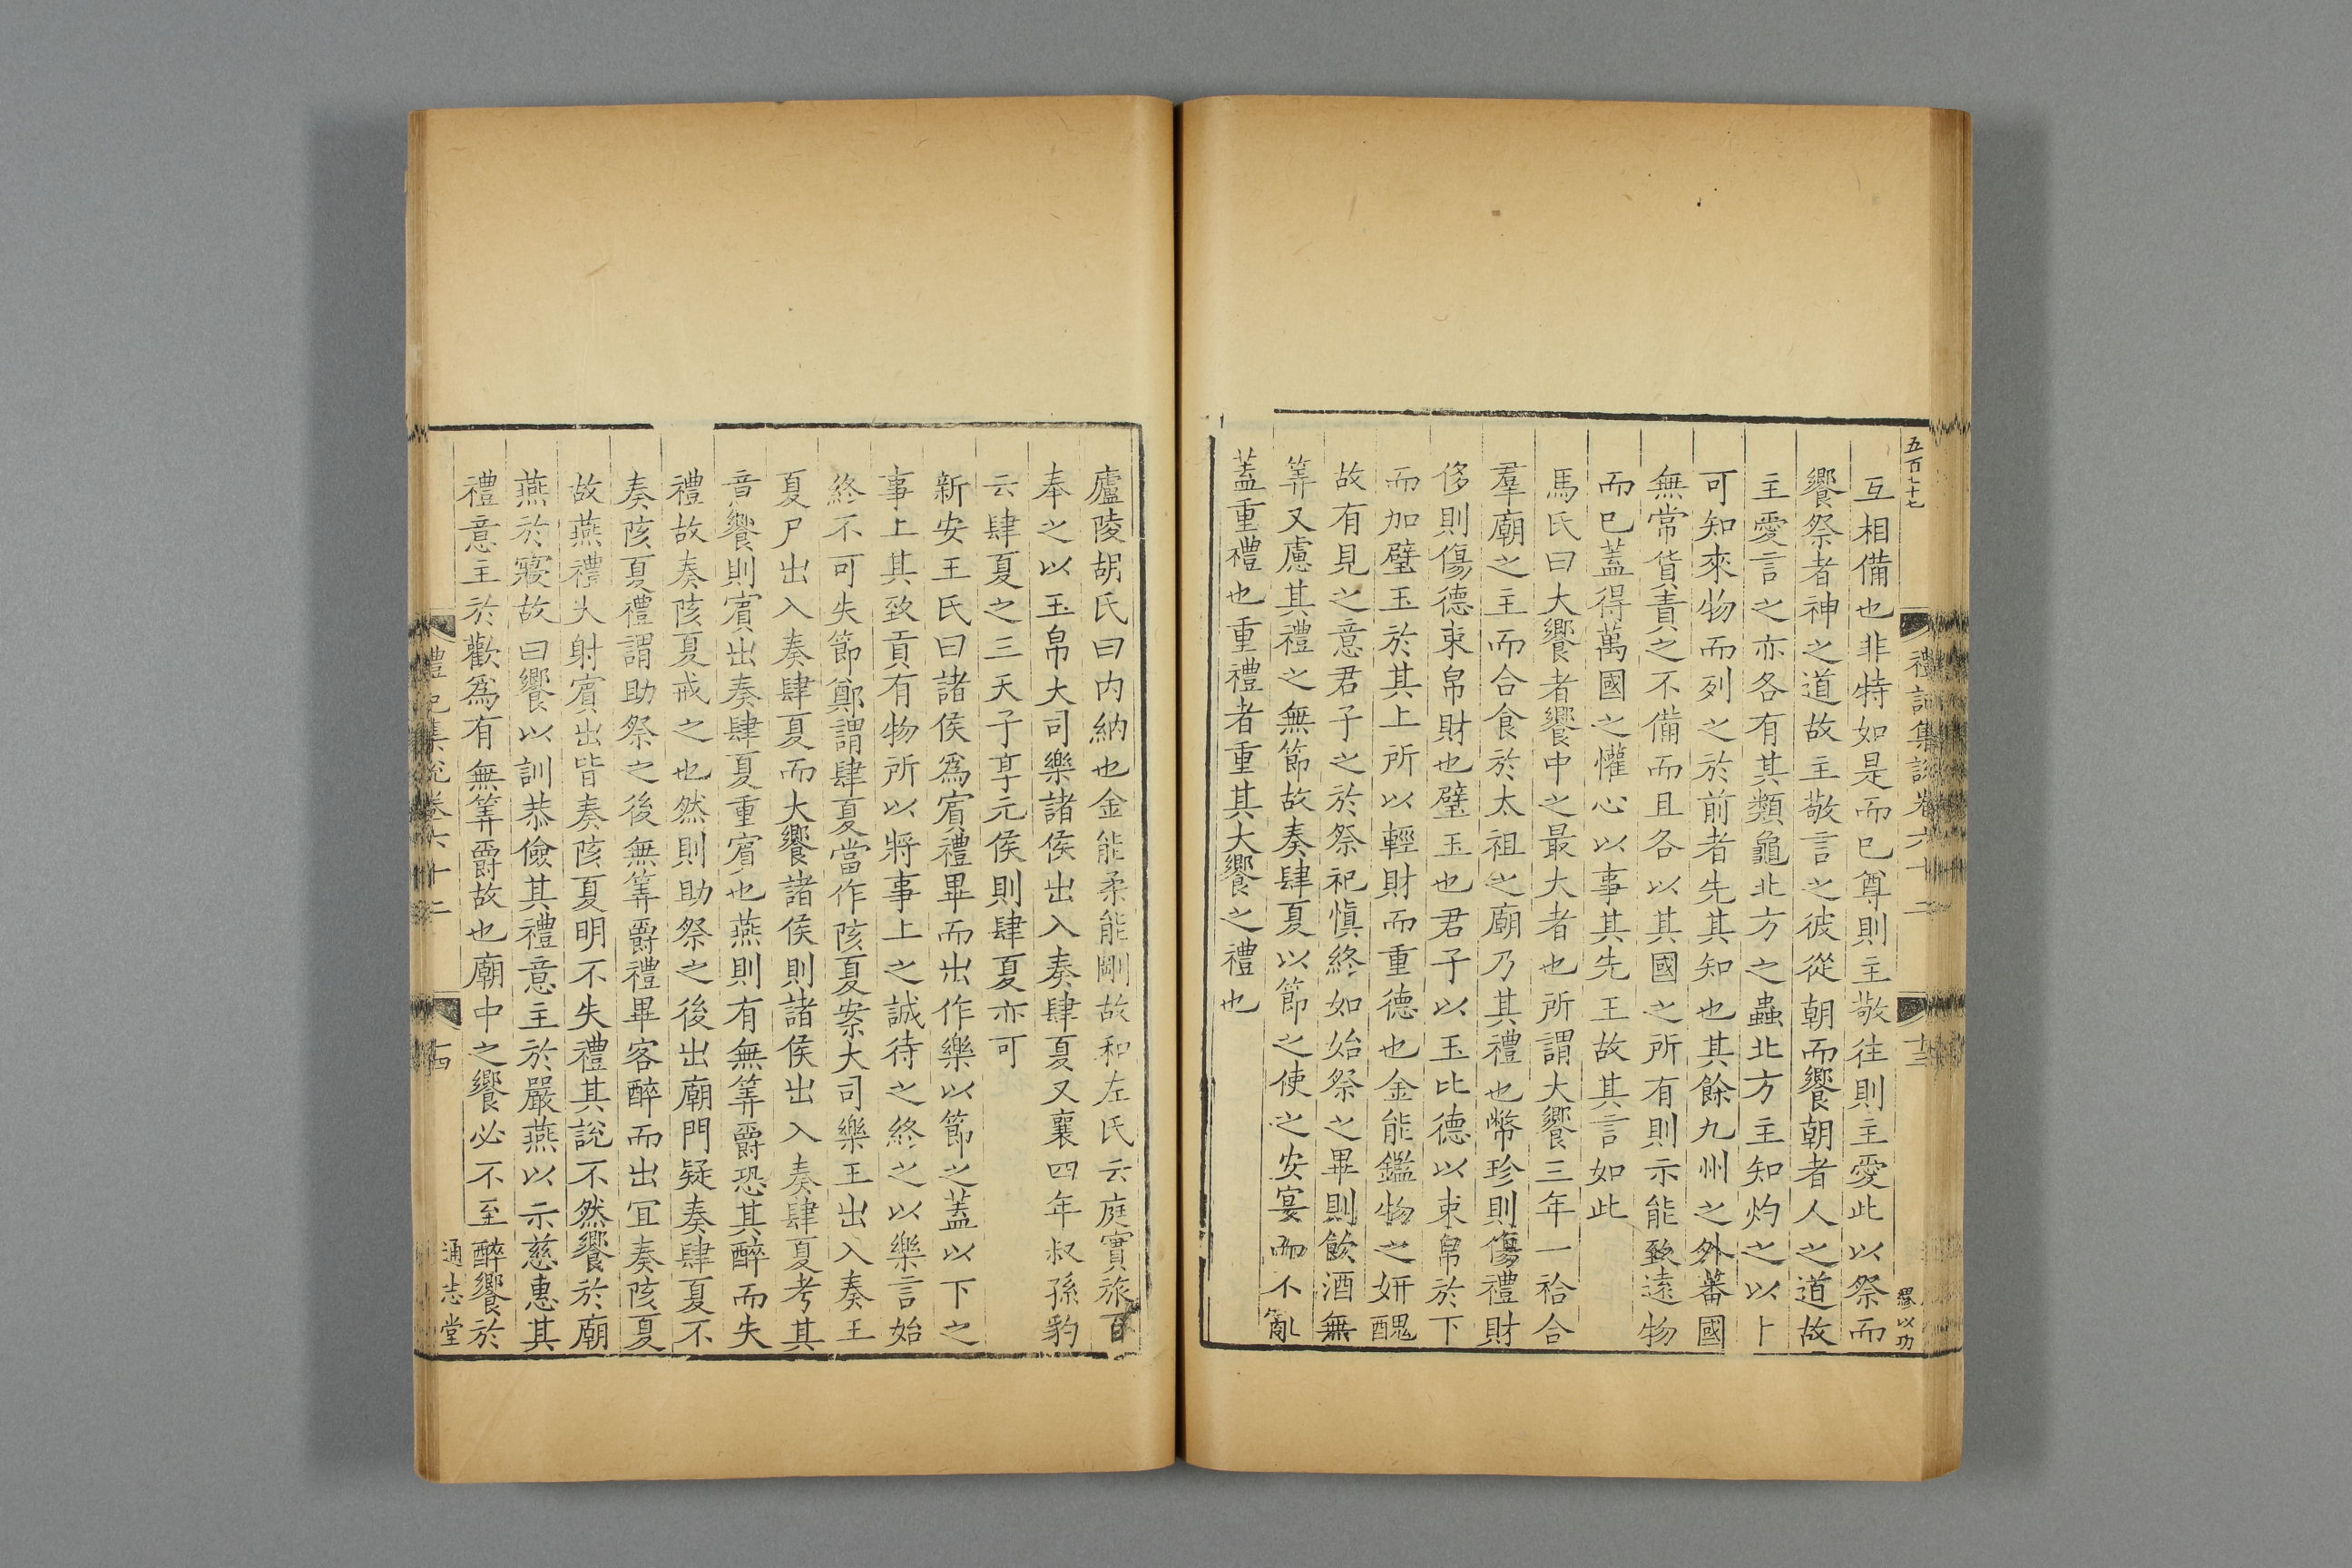 五百七十七
禮記集說卷六十二
十三
互相備也非特如是而已尊則主敬往則主愛此以祭而
饗祭者神之道故主敬言之彼從朝而饗朝者人之道故
主愛言之亦各有其類龜北方之蟲北方主知灼之以卜
可知來物而列之於前者先其知也其餘九州之外蕃國
無常貨責之不備而且各以其國之所有則示能致遠物
而已蓋得萬國之懽心以事其先王故其言如此
馬氏曰大饗者饗中之最大者也所謂大饗三年一祫合
羣廟之主而合食於太祖之廟乃其禮也幣珍則傷禮財
侈則傷德束帛財也璧玉也君子以玉比德以束帛於下
而加璧玉於其上所以輕財而重德也金能鑑物之妍醜
故有見之意君子之於祭祀慎終如始祭之畢則飲酒無
筭又慮其禮之無節故奏肆夏以節之使之安宴而不亂
蓋重禮也重禮者重其大饗之禮也
廬陵胡氏曰内納也金能柔能剛故和左氏云庭實旅百
奉之以玉帛大司樂諸侯出入奏肆夏又襄四年叔孫豹
云肆夏之三天子享元侯則肆夏亦可
新安王氏曰諸侯爲賓禮畢而出作樂以節之蓋以下之
事上其致貢有物所以將事上之誠待之終之以樂言始
終不可失節鄭謂肆夏當作陔夏案大司樂王出入奏王
夏尸出入奏肆夏而大饗諸侯則諸侯出入奏肆夏考其
音饗則賓出奏肆夏重賓也燕則有無筭爵恐其醉而失
禮故奏陔夏戒之也然則助祭之後出廟門疑奏肆夏不
奏陔夏禮謂助祭之後無筭爵禮畢客醉而出宜奏陔夏
故燕禮大射賓出皆奏陔夏明不失禮其說不然饗於廟
燕於寢故曰饗以訓恭儉其禮意主於嚴燕以示慈惠其
禮意主於歡爲有無筭爵故也廟中之饗必不至醉饗於
禮記集說卷六十二
十四
通志堂